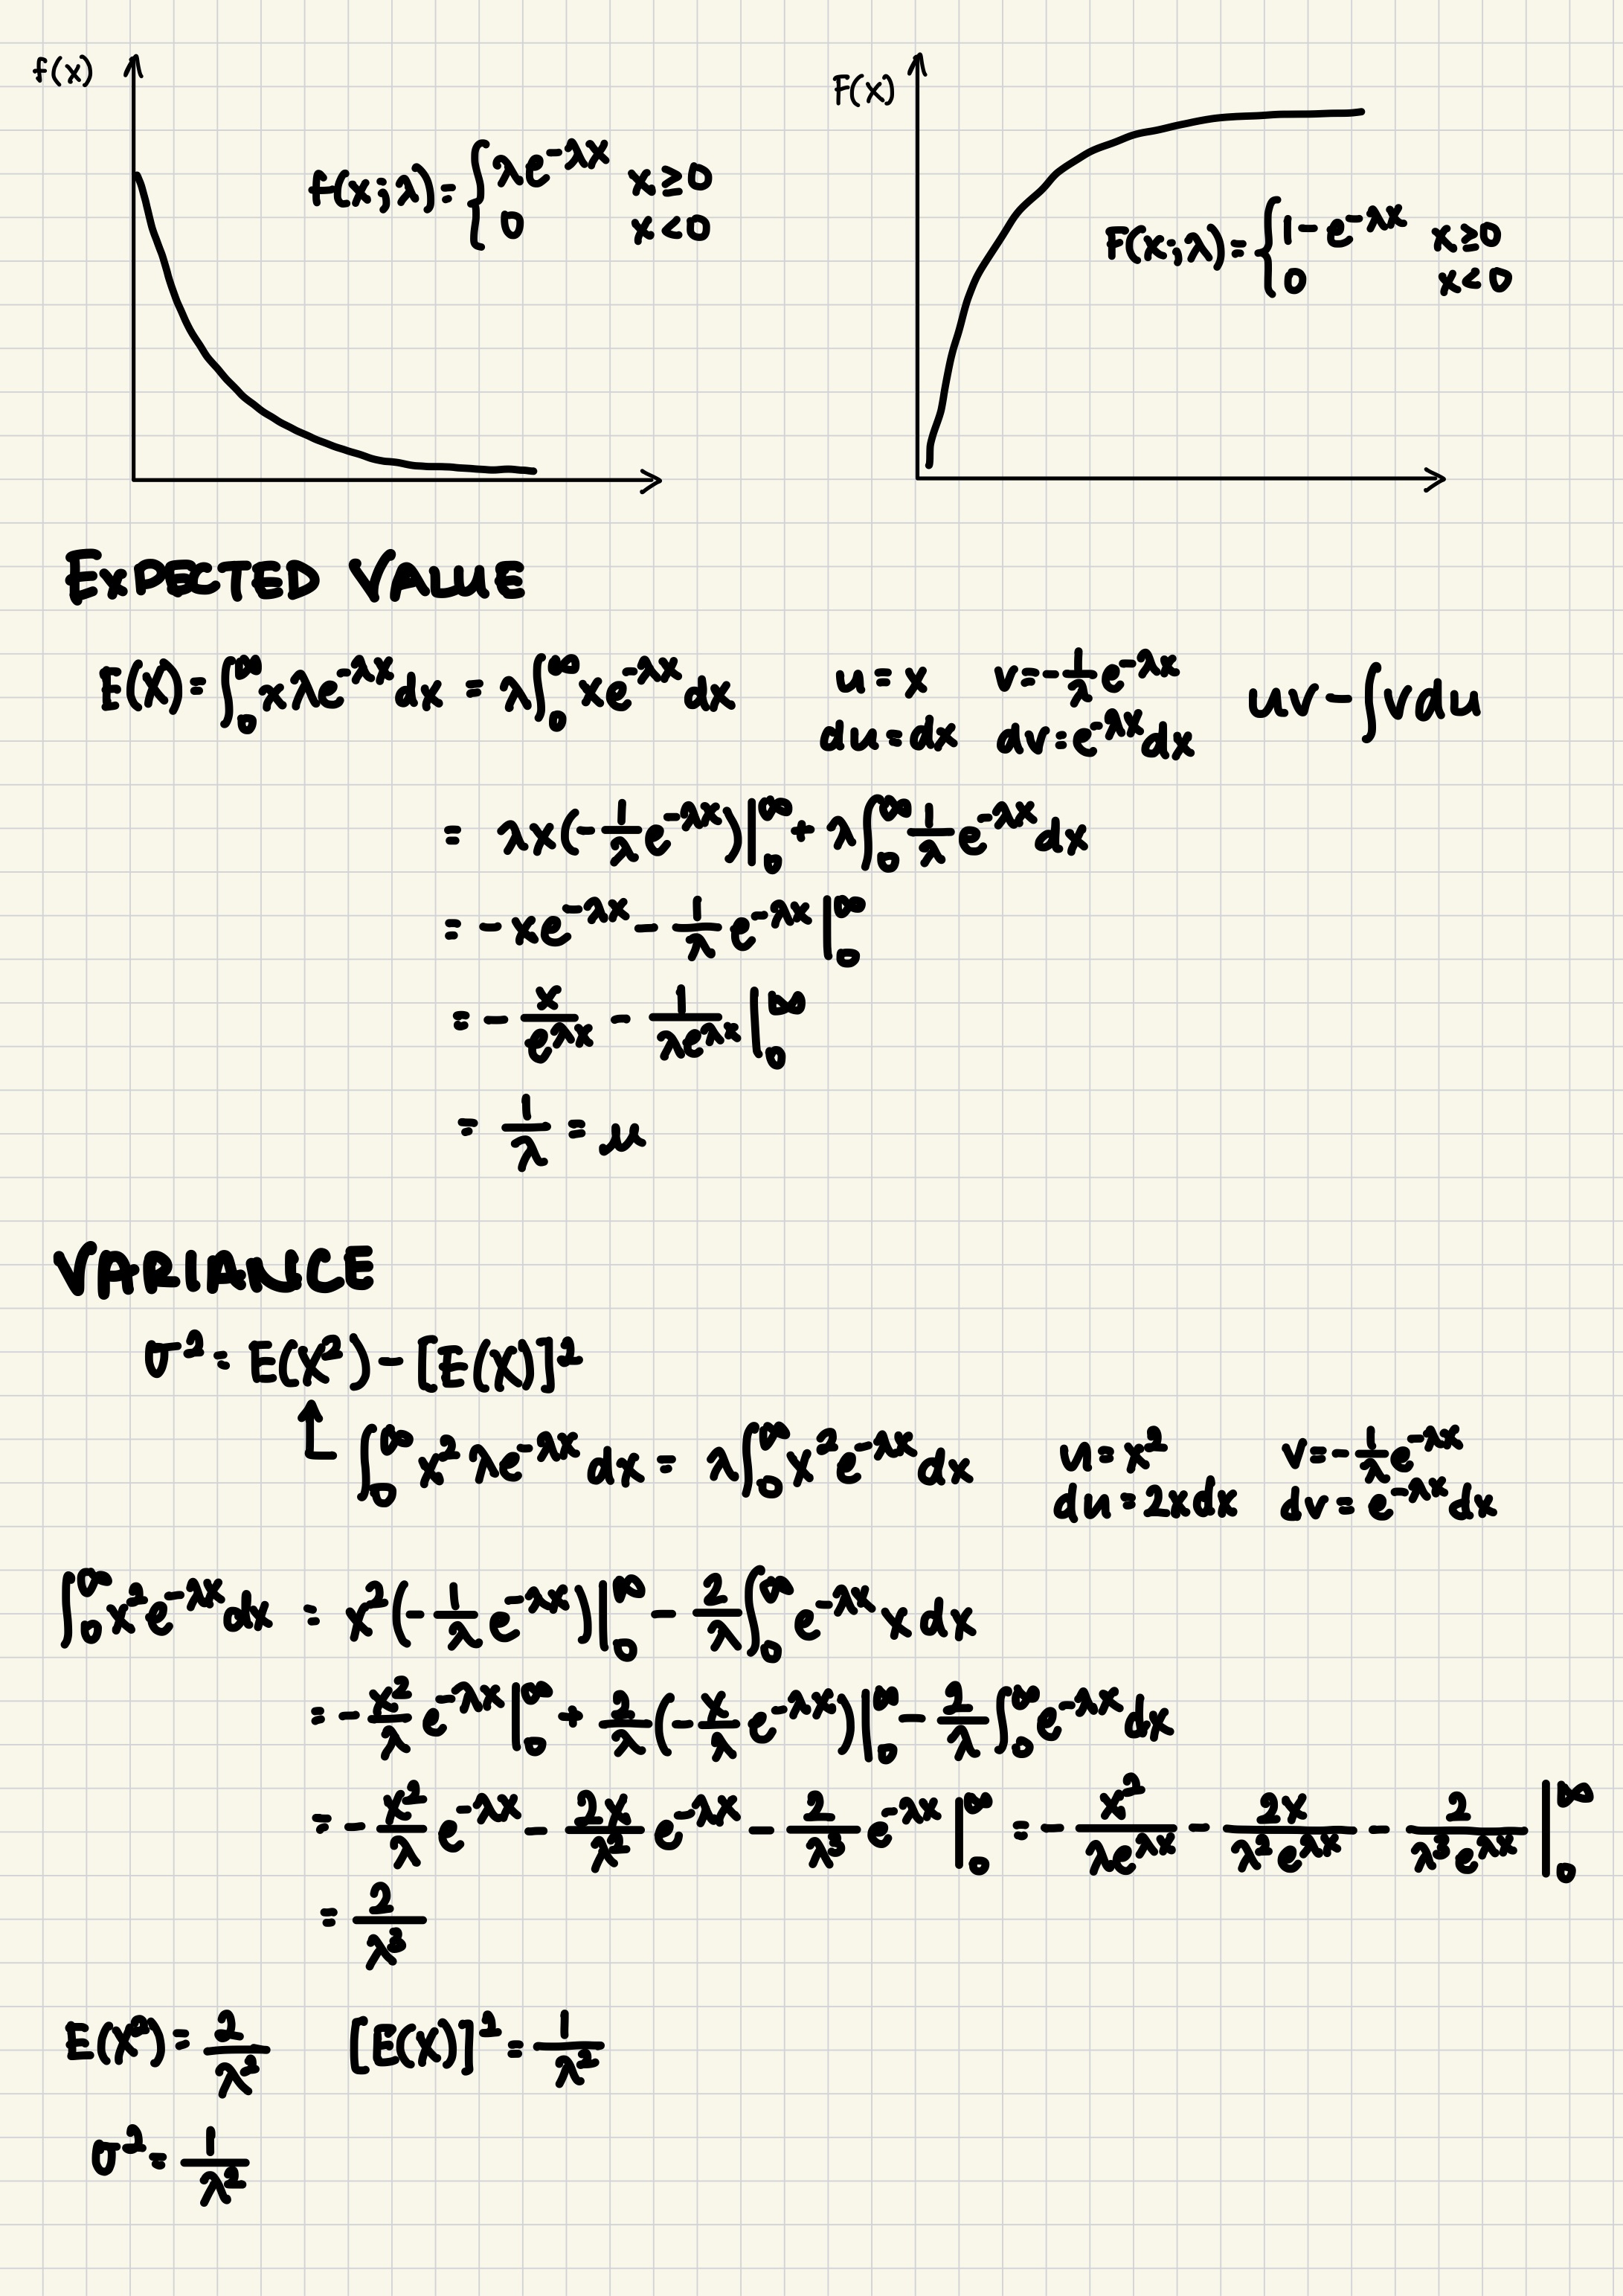 f(x)
f(x;λ) = { λe^{-λx} x≥0
0 x<0
F(x)
F(x;λ) = { 1-e^{-λx} x≥0
0 x<0
EXPECTED VALUE
E(X) = ∫_0^∞ xλe^{-λx}dx = λ∫_0^∞ xe^{-λx}dx u=x v=-1/λ e^{-λx} uv-∫vdu
du=dx dv=e^{-λx}dx
= λx(-1/λ e^{-λx})|_0^∞ + λ∫_0^∞ 1/λ e^{-λx}dx
= -xe^{-λx} - 1/λ e^{-λx}|_0^∞
= -x/e^{λx} - 1/(λe^{λx})|_0^∞
= 1/λ = μ
VARIANCE
σ² = E(X²) - [E(X)]²
↑ ∫_0^∞ x²λe^{-λx}dx = λ∫_0^∞ x²e^{-λx}dx u=x² v=-1/λ e^{-λx}
du=2xdx dv=e^{-λx}dx
∫_0^∞ x²e^{-λx}dx = x²(-1/λ e^{-λx})|_0^∞ - 2/λ ∫_0^∞ e^{-λx} x dx
= -x²/λ e^{-λx}|_0^∞ + 2/λ(-x/λ e^{-λx})|_0^∞ - 2/λ ∫_0^∞ e^{-λx}dx
= -x²/λ e^{-λx} - 2x/λ² e^{-λx} - 2/λ³ e^{-λx}|_0^∞ = -x²/(λe^{λx}) - 2x/(λ²e^{λx}) - 2/(λ³e^{λx})|_0^∞
= 2/λ³
E(X²) = 2/λ² [E(X)]² = 1/λ²
σ² = 1/λ²